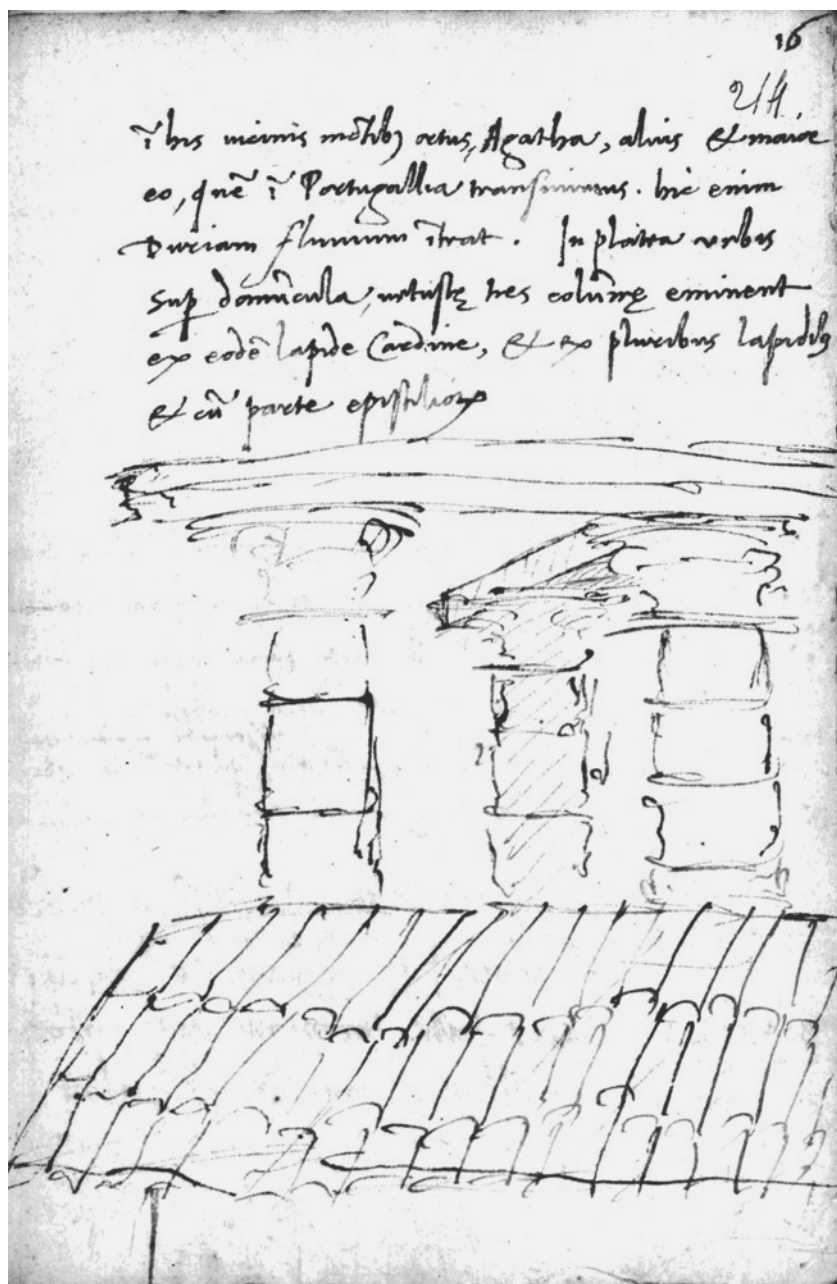 16
214
ī his uicinis mōtibꝫ ortus, Agatha, alius & maior
eo, quē ī Portugallia transiuimus. hic enim
Duriam fluuium ītrat. In platea urbis
Suꝑ domūcula, uetustę tres colūnę eminent
ex eodē lapide Cardine, & ex pluribus lapidibꝫ
& cū parte epistilioꝝ